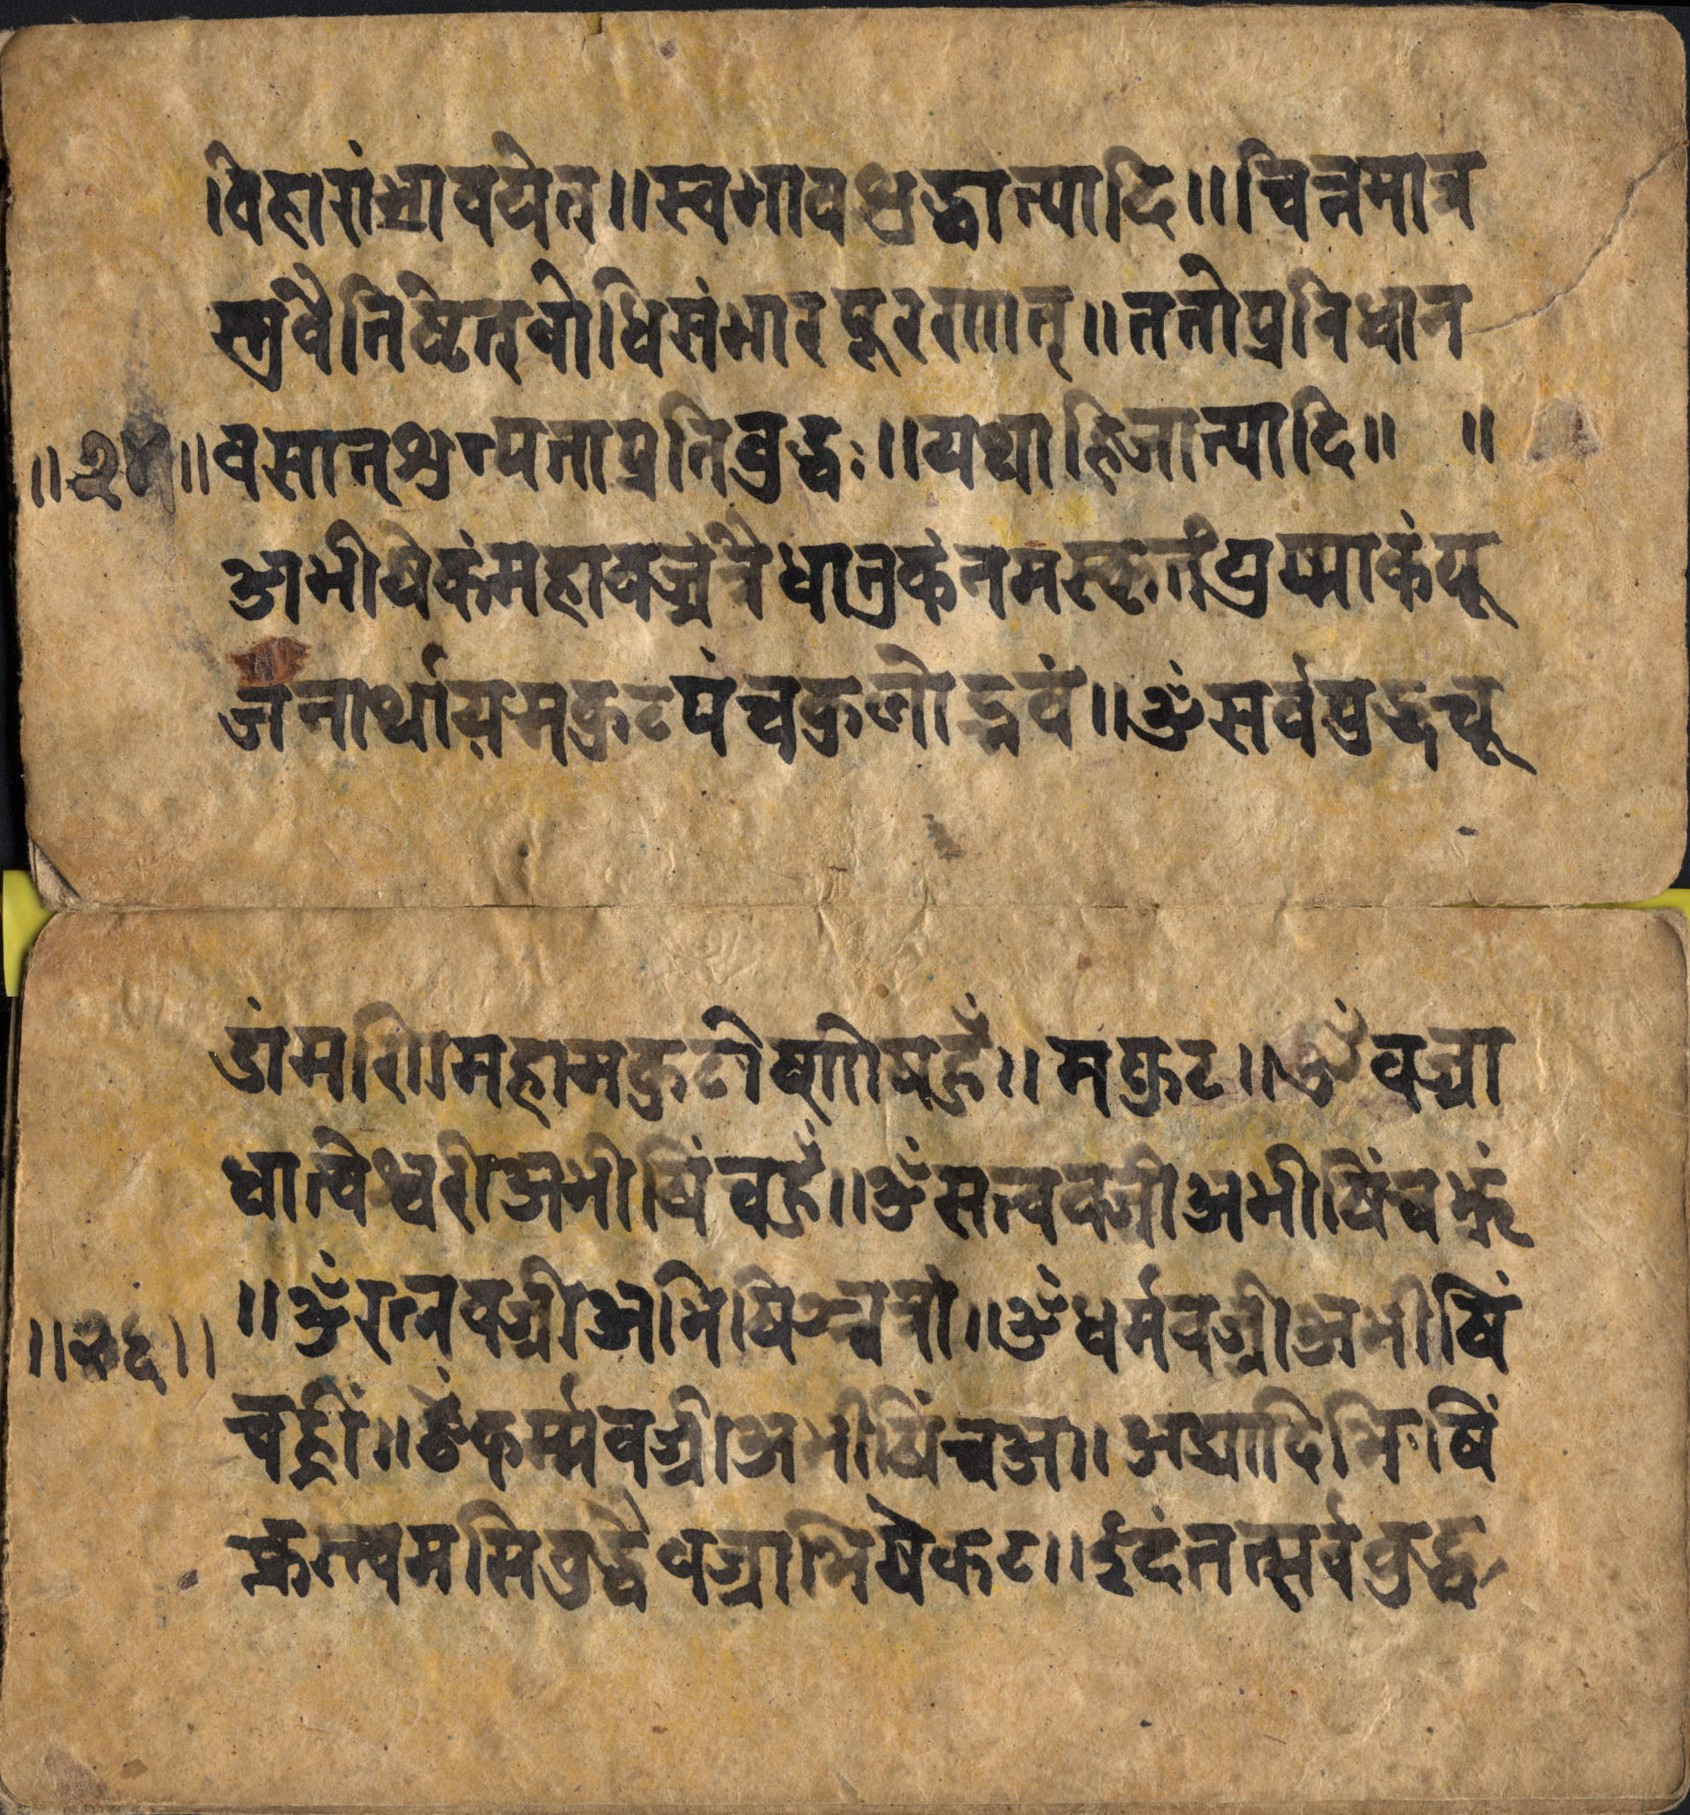 विहारांभावयेत्॥स्वभावशुद्धात्यादि॥चित्तमात्र
स्त्रवैतिष्ठेत्बोधिसंभारपूरणात्॥ततोप्रविधान
॥२५॥वसान्शुन्यताप्रतिबुद्धः॥यथाहिजात्यादि॥ ॥
अभीषेकंमहावज्रंत्रैधातुकंनमस्कृतंप्रयाकंपू
जनार्थायमकुटपंचकुलोद्भवं॥ॐसर्वबुद्धचू
डांमणिमहामकुटोष्णीषहूँ॥मकुट॥ॐवज्रा
धात्वेश्वरीअभीषिंचहूँ॥ॐसत्त्ववज्रीअभीषिंचह्रूं
॥ॐरत्नवज्रीअभिषिञ्चत्रां॥ॐधर्मवज्रीअभीषिं
॥२६॥
चह्रीं॥ॐकर्म्मवज्रीअभीषिंचअ॥अद्यादिभिषिं
क्तस्त्वमसिबुद्धैवज्राभिषेकट॥इदंतत्सर्वबुद्ध